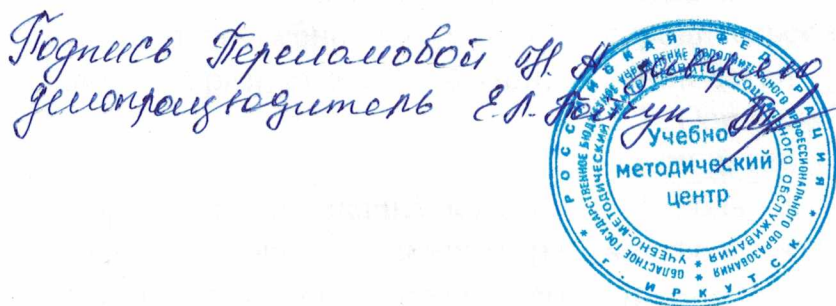 Подпись Переломовой Н. Н. заверяю
делопроизводитель Е.Л.
РОССИЙСКАЯ ФЕДЕРАЦИЯ * г. ИРКУТСК *
ОБЛАСТНОЕ ГОСУДАРСТВЕННОЕ БЮДЖЕТНОЕ УЧРЕЖДЕНИЕ ДОПОЛНИТЕЛЬНОГО ПРОФЕССИОНАЛЬНОГО ОБРАЗОВАНИЯ *
УЧЕБНО-МЕТОДИЧЕСКИЙ ЦЕНТР ОБСЛУЖИВАНИЯ *
Учебно
методический
центр